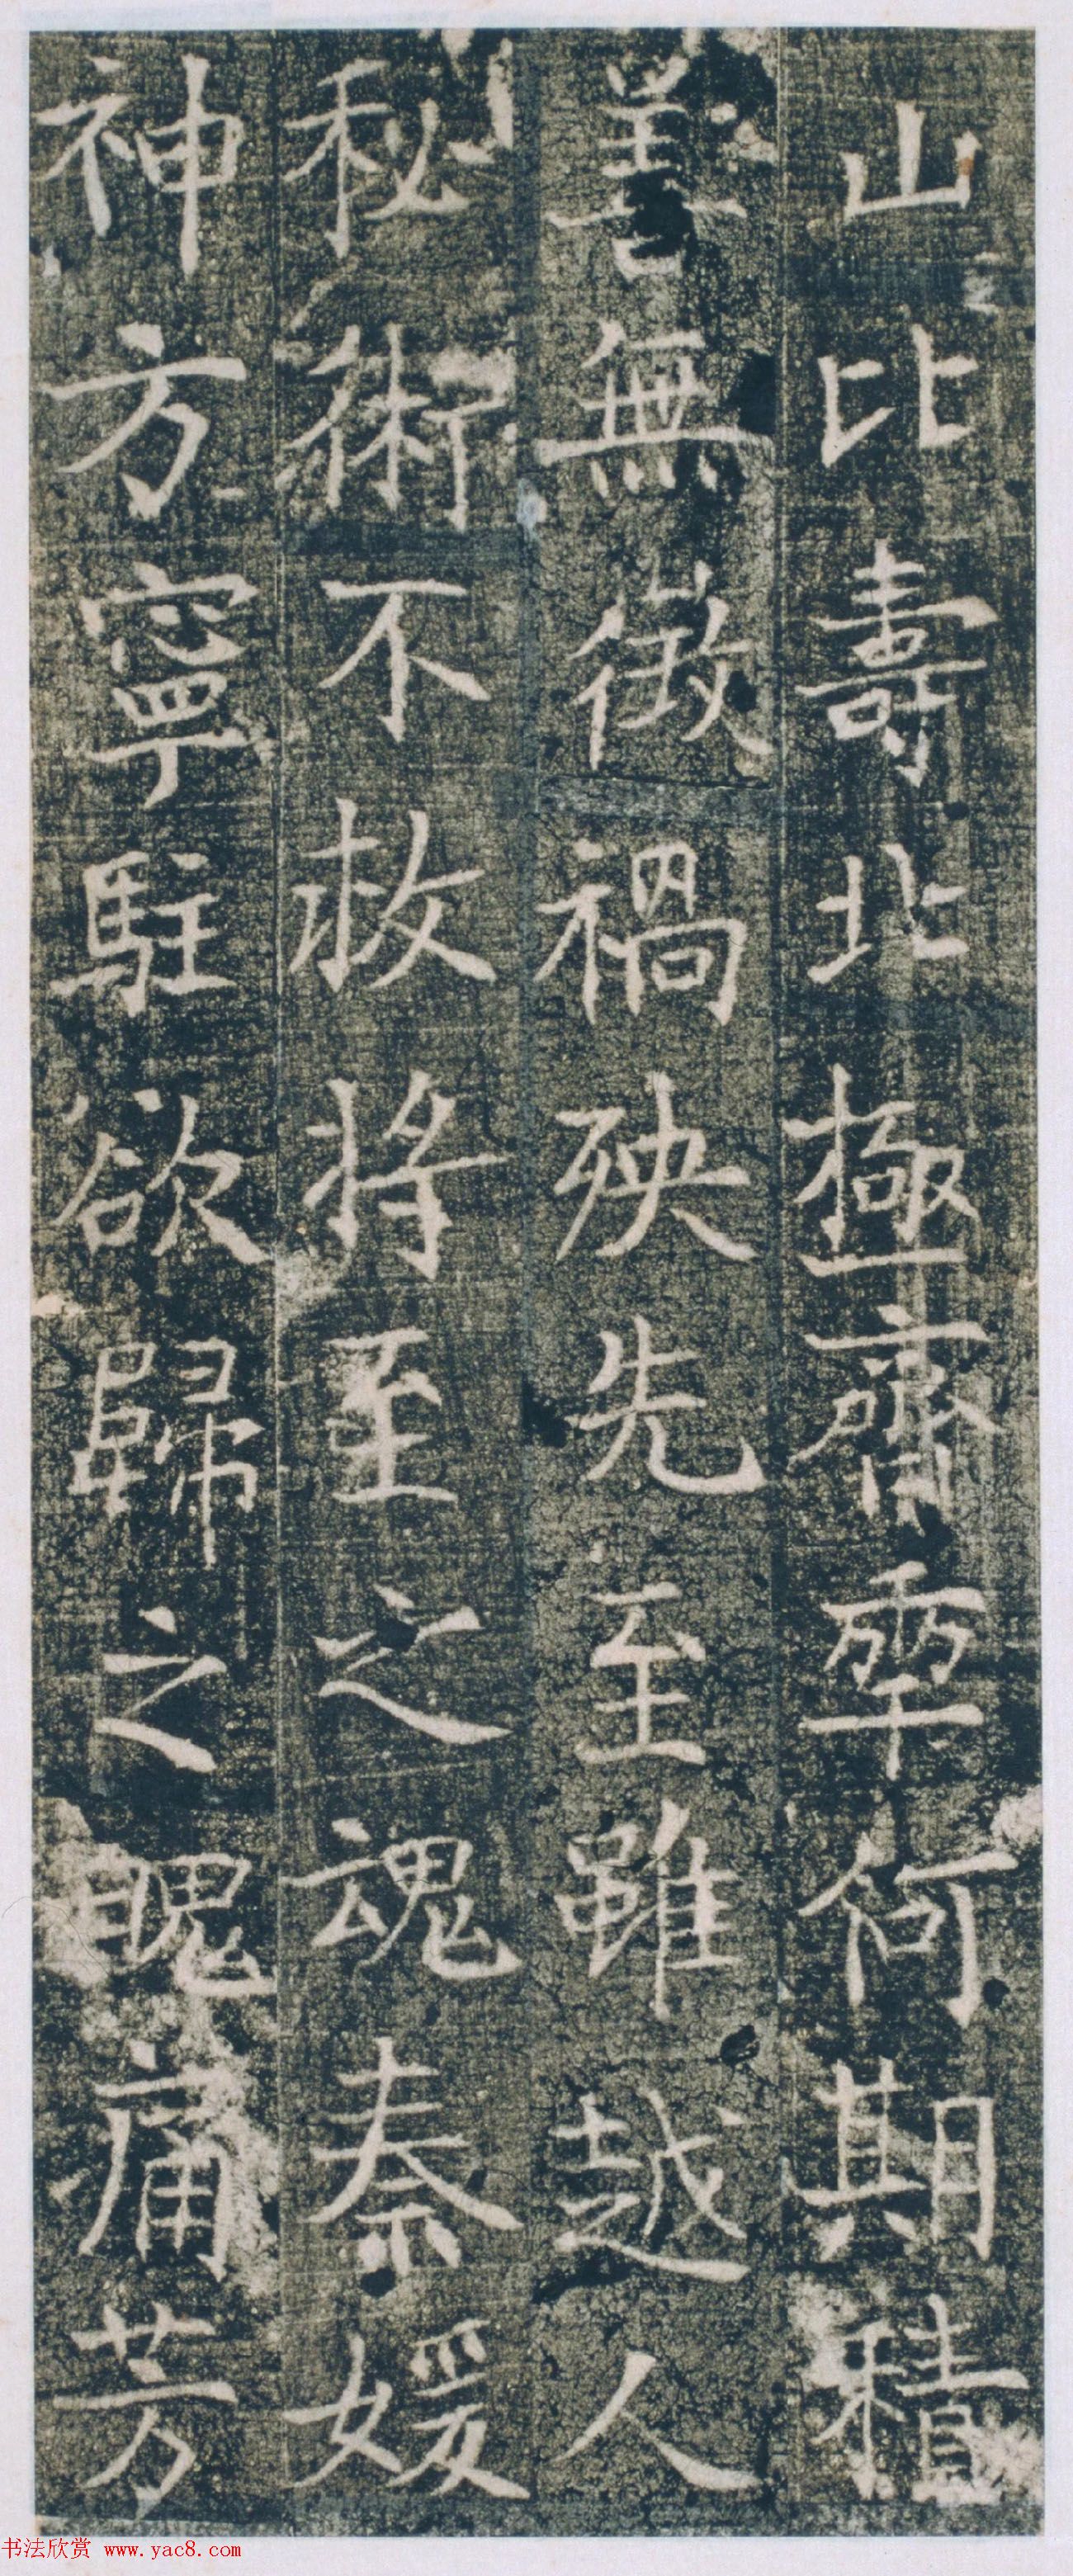 山比壽北極齊尊何期積
善無徵禍殃先至雖越人
秘術不救將至之魂秦媛
神方寧駐欲歸之魄痛芳
书法欣赏 www.yac8.com